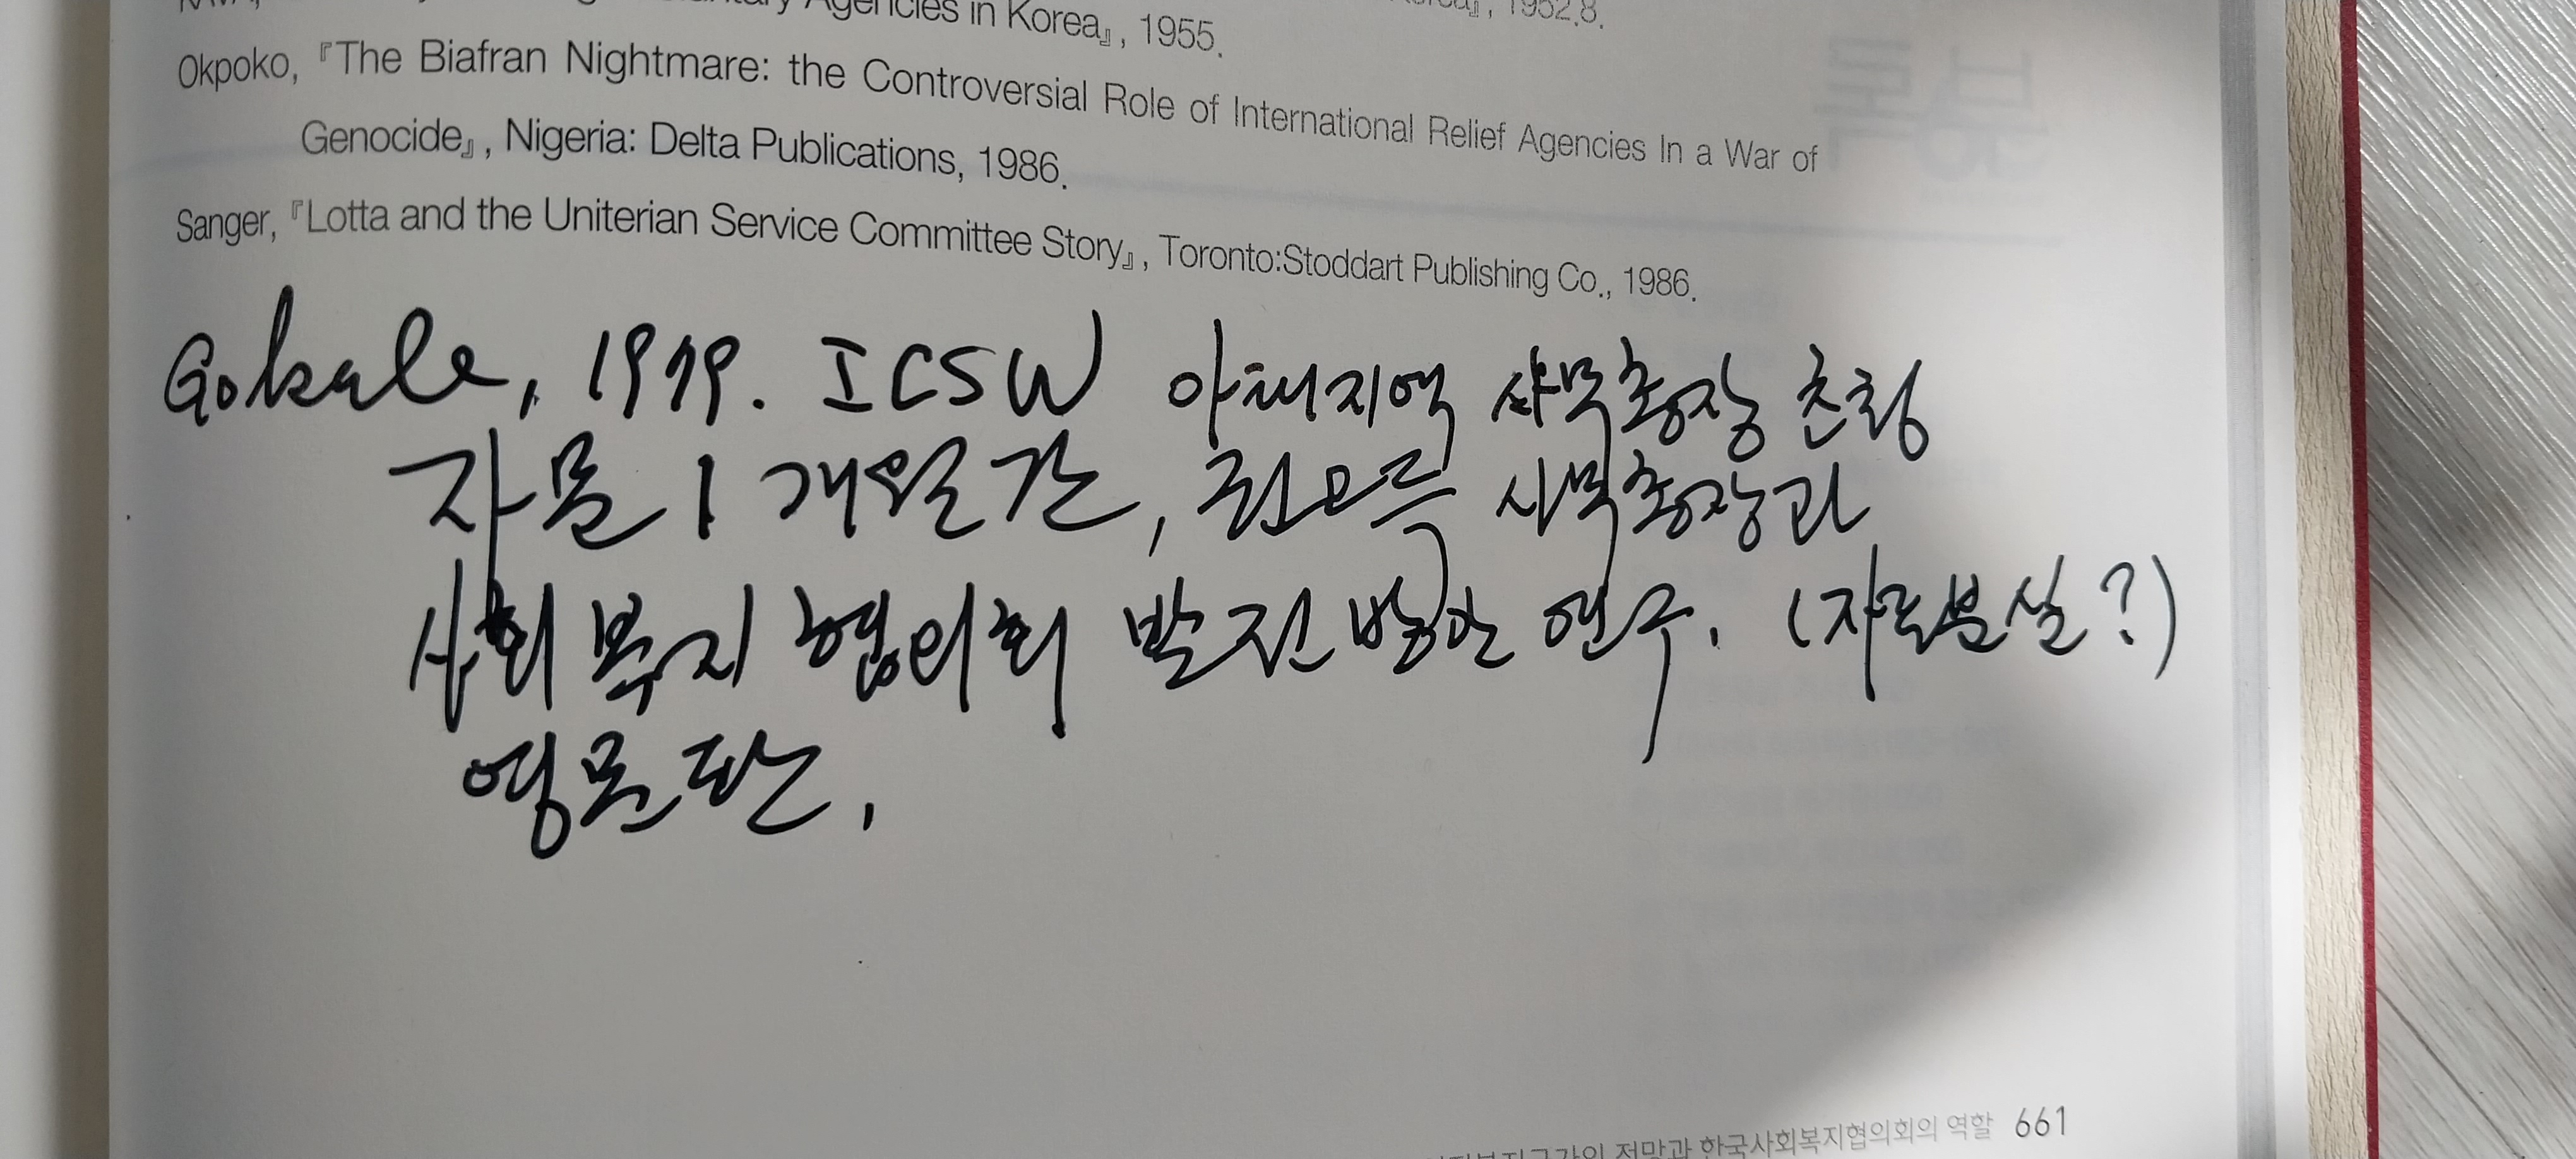 Agencies in Korea』, 1955.
1952.8.
Okpoko, 『The Biafran Nightmare: the Controversial Role of International Relief Agencies In a War of
Genocide』, Nigeria: Delta Publications, 1986.
Sanger, 『Lotta and the Uniterian Service Committee Story』, Toronto:Stoddart Publishing Co., 1986.
Gokale, 1979. ICSW 아태지역 사무총장 초청
자문 1개월간, 사무총장과
사회복지협의회 발전방안 연구. (자료분실?)
영문판.
전망과 한국사회복지협의회의 역할 661